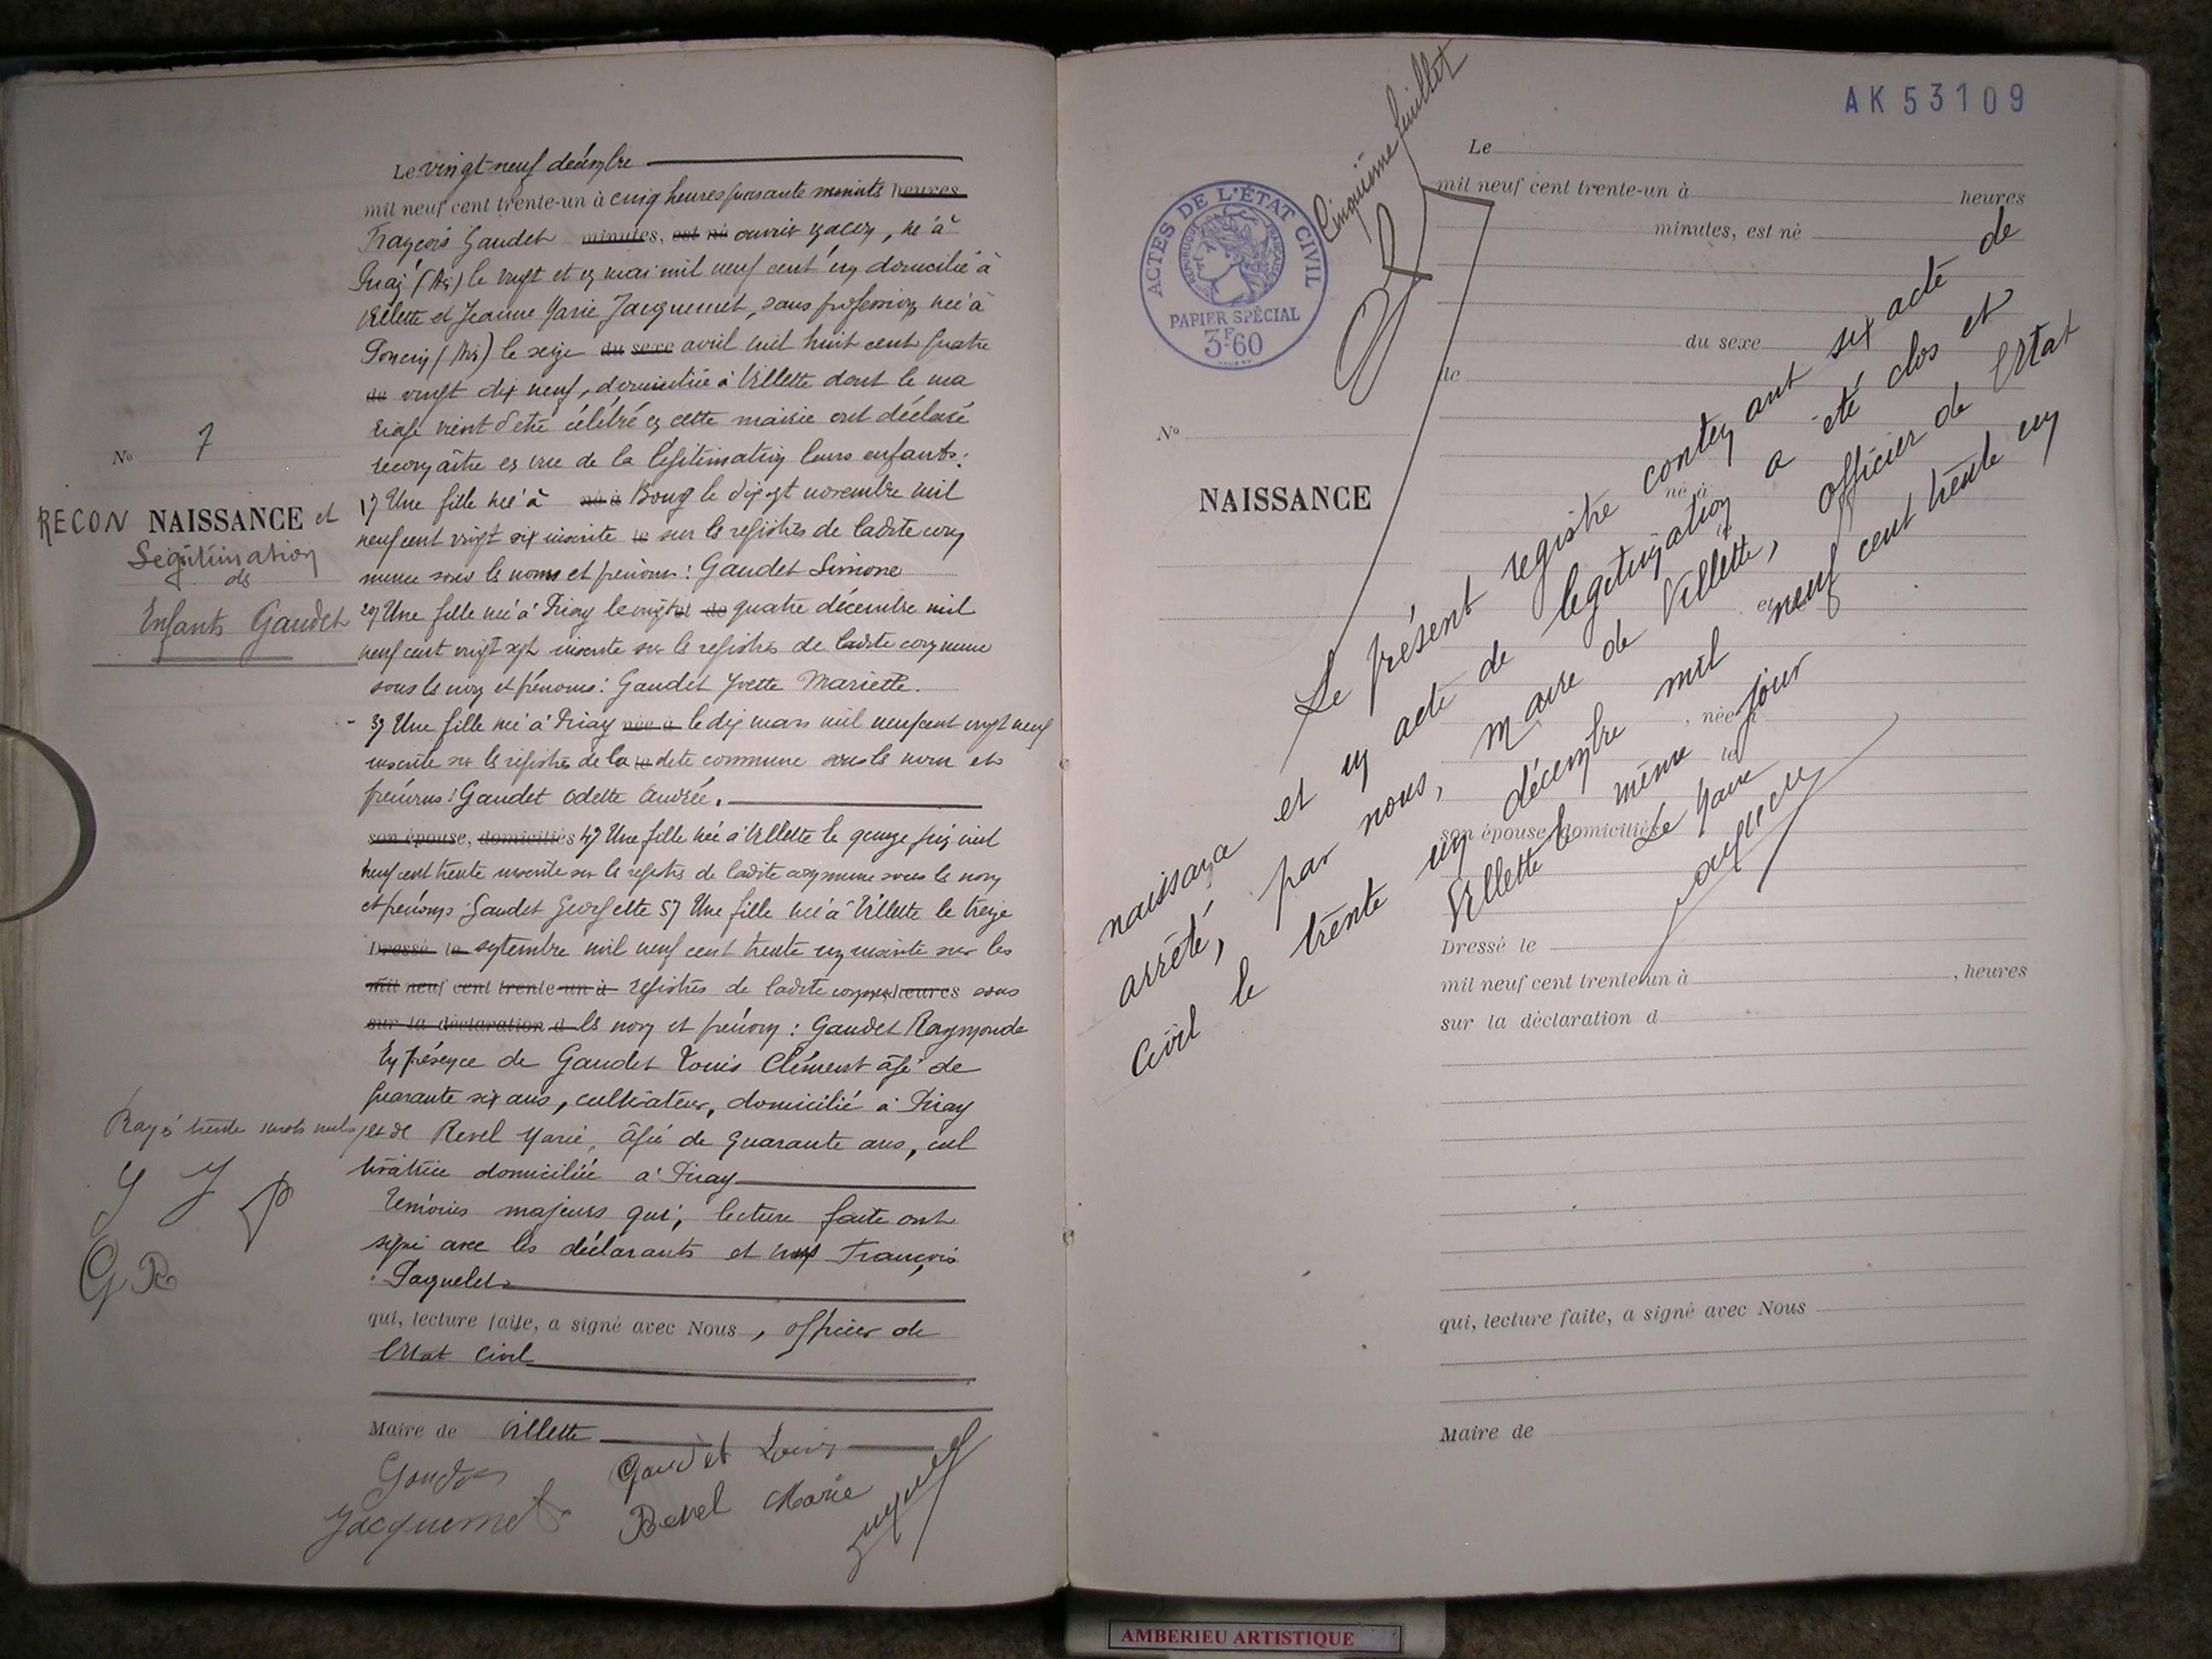 Le vingt-neuf décembre
mil neuf cent trente-un à cinq heures quarante minutes heures
François Gaudet minutes, est né ouvrier maçon, né à
(Ain) le vingt et un mai mil neuf cent un domicilié à
Villette et Jeanne Marie Jacquemet, sans profession née à
Poncin (Ain) le seize du sexe avril mil huit cent quatre
de vingt dix neuf, domiciliée à Villette dont le ma
riage vient d'être célébré en cette mairie ont déclaré
reconnaître en vue de la légitimation leurs enfants:
1) Une fille née à né à Bourg le novembre mil
neuf cent vingt six inscrite le sur les registres de ladite com
mune sous les noms et prénoms: Gaudet Simone
2) Une fille née à Priay le vingt et de quatre décembre mil
neuf cent vingt sept inscrite sur les registres de ladite commune
sous les nom et prénoms: Gaudet Yvette Mariette.
3) Une fille née à Priay née à le dix mars mil neuf cent vingt neuf
inscrite sur les registres de la le dite commune sous les nom et
prénoms: Gaudet Odette Andrée.
son épouse, domiciliés 4) Une fille née à Villette le quinze juin mil
neuf cent trente inscrite sur les registres de ladite commune sous les nom
et prénoms Gaudet Georgette 5) Une fille née à Villette le treize
Dressé le septembre mil neuf cent trente un inscrite sur les
mil neuf cent trente-un à registres de ladite commune heures sous
sur la déclaration d les nom et prénom: Gaudet Raymonde
En présence de Gaudet Louis Clément âgé de
quarante six ans, cultivateur, domicilié à Priay
et de Revel Marie, âgée de quarante ans, cul
tivatrice domiciliée à Priay
témoins majeurs qui, lecture faite ont
signé avec les déclarants et nous François
Paquelet
qui, lecture faite, a signé avec Nous, officier de
l'Etat Civil
Maire de Villette
Gaudet Gaudet Louis
Jacquemet Revel Marie
No 7
RECONNAISSANCE et
Légitimation
des
Enfants Gaudet
Rayé trente mots nuls
G J P
G R
AK53109
Cinquième feuillet
ACTES DE L'ÉTAT CIVIL
RÉPUBLIQUE FRANÇAISE
PAPIER SPÉCIAL
3F60
No
NAISSANCE
Le
mil neuf cent trente-un à heures
minutes, est né
du sexe
de
né à
et
, née
le
son épouse, domiciliés
Dressé le
mil neuf cent trente-un à , heures
sur la déclaration d
qui, lecture faite, a signé avec Nous
Maire de
Le présent registre contenant six acte de
naissance et un acte de légitimation a été clos et
arrêté, par nous, maire de Villette, officier de l'Etat
Civil le trente un décembre mil neuf cent trente un
Villette le même jour
Le Maire
AMBERIEU ARTISTIQUE